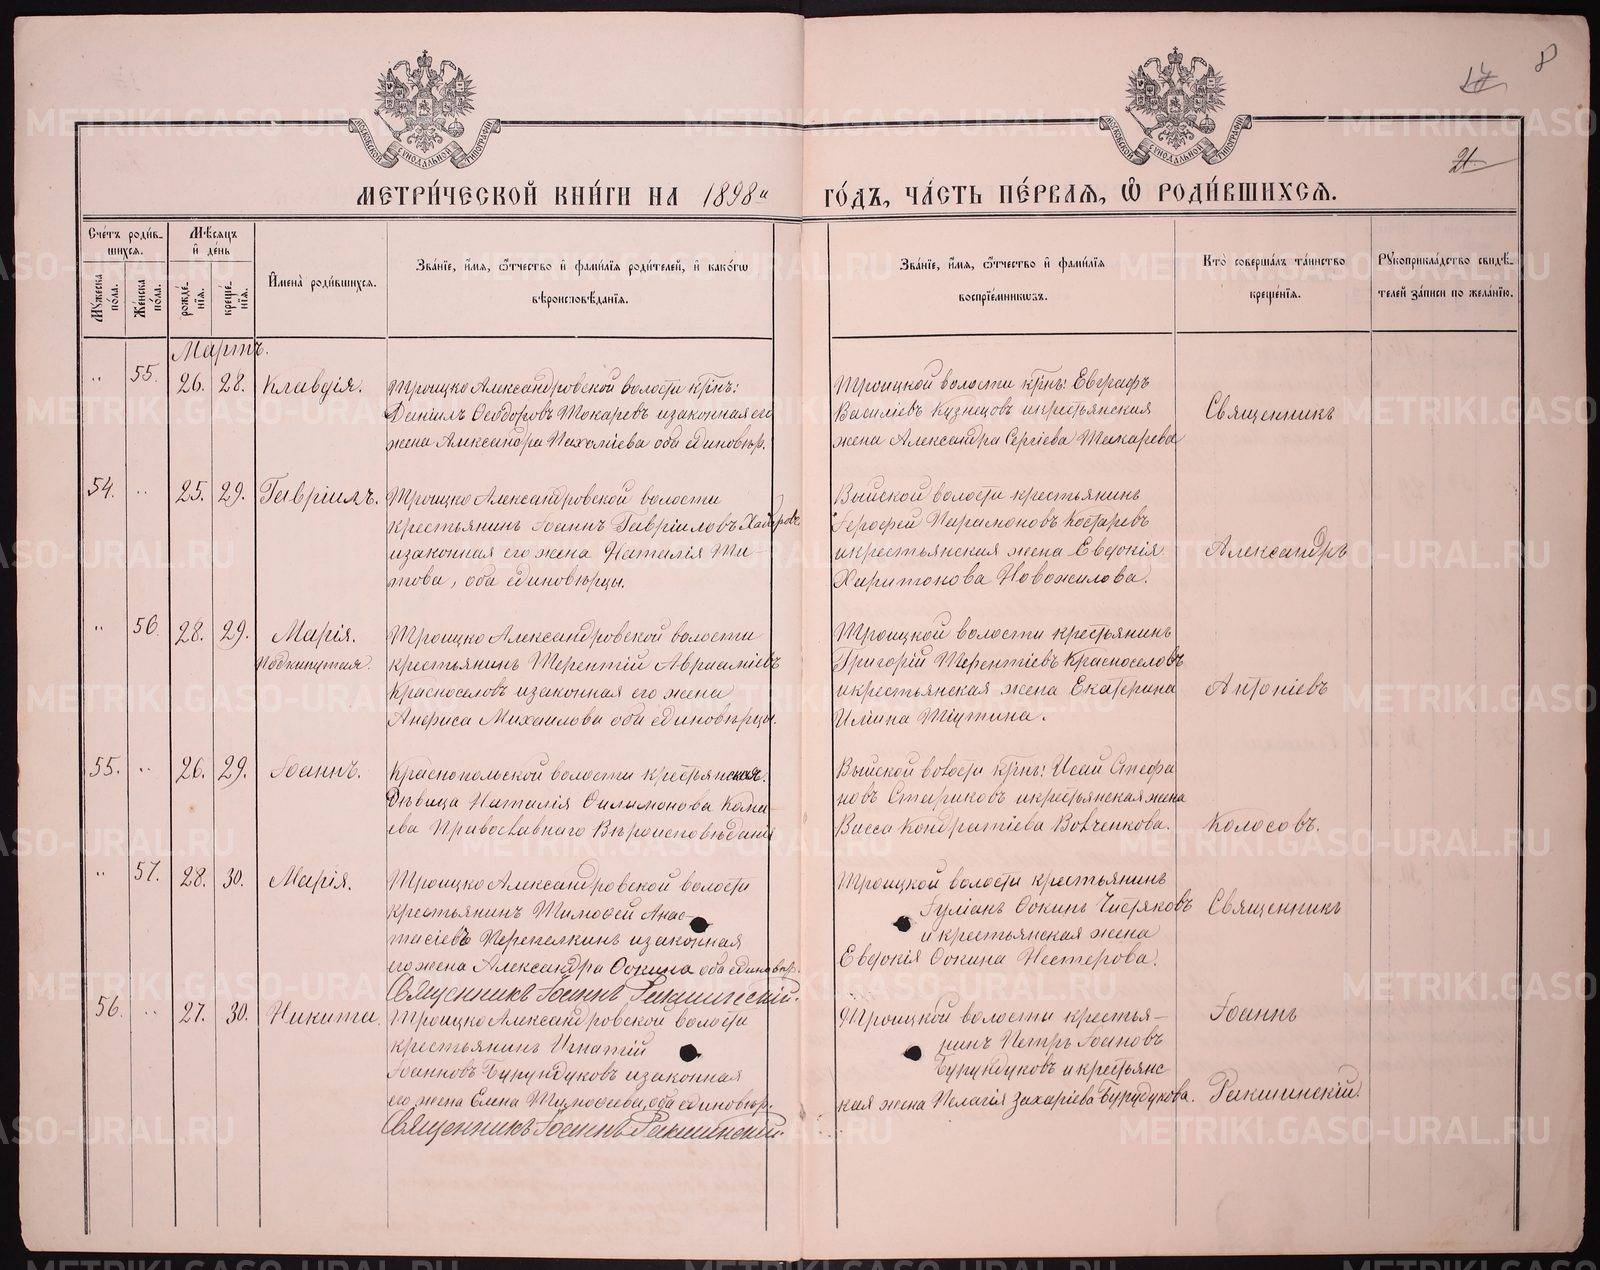 8
17
21
МЕТРИ́ЧЕСКОЙ КНИ́ГИ НА 1898й ГО́ДЪ, ЧА́СТЬ ПЕ́РВАЯ, Ѡ РОДИ́ВШИХСЯ.
Сче́тъ роди́в-
шихся.
Мѣ́сяцъ
и҆ де́нь
Мꙋ́жеска
по́ла.
Же́нска
по́ла.
рожде́-
нїѧ.
креще́-
нїѧ.
И҆мена̀ роди́вшихся.
Зва́нїе, и҆́мя, ѻ҆́тчество и҆ фами́лїя роди́телей, и҆ како́гѡ
вѣроисповѣ́данїя.
Зва́нїе, и҆́мя, ѻ҆́тчество и҆ фами́лїя
воспрїе́мникѡвъ.
Кто̀ соверша́лъ та́инство
креще́нїя.
Рꙋкоприкла́дство свидѣ́-
телей за́писи по жела́нїю.
Мартъ.
„ 55. 26. 28. Клавдія.
Троицко Александровской волости крнъ:
Даніилъ Ѳеодоровъ Токаревъ и законная его
жена Александра Пахоміева оба единовѣр.
Троицкой волости крнъ: Евграфъ
Василіевъ Кузнецовъ и крестьянская
жена Александра Сергіева Токарева
Священникъ
54. „ 25. 29. Гавріилъ.
Троицко Александровской волости
крестьянинъ Іоаннъ Гавріиловъ
и законная его жена Наталія Ти-
това, оба единовѣрцы.
Выйской волости крестьянинъ
Іерофей Парамоновъ Костаревъ
и крестьянская жена Евдокія
Харитонова Новожилова.
Александръ
„ 56. 28. 29. Марія.
Подкинутая.
Троицко Александровской волости
крестьянинъ Терентій Авраамiевъ
Красноселовъ и законная его жена
Анфиса Михаилова оба единовѣрцы.
Троицкой волости крестьянинъ
Григорій Терентіевъ Красноселовъ
и крестьянская жена Екатерина
Иліина Тіутина.
Антоніевъ
55. „ 26. 29. Іоаннъ.
Краснопольской волости крестьянская
Дѣвица Наталія Филимонова
Православнаго Вѣроисповѣданія
Выйской волости крнъ: Исай Стефа
новъ Стариковъ и крестьянская жена
Васса Кондратіева Вовченкова.
Колосовъ.
„ 57. 28. 30. Марія.
Троицко Александровской волости
крестьянинъ Тимоѳей Анас-
тасіевъ Перепелкинъ и законная
его жена Александра Ѳокина оба единовѣр.
Священникъ Іоаннъ Ракшинскій.
Троицкой волости крестьянинъ
Іуліанъ Ѳокинъ Чистяковъ
и крестьянская жена
Евдокія Ѳокина Нестерова.
Священникъ
56. „ 27. 30. Никита.
Троицко Александровской волости
крестьянинъ Игнатій
Іоанновъ Бурундуковъ и законная
его жена Елена Тимоѳеева, оба единовѣр.
Священникъ Іоаннъ Ракшинскій.
Троицкой волости крестья-
нинъ Петръ Іоановъ
Бурундуковъ и крестьянс
кая жена Пелагія Захаріева Бурудукова.
Іоаннъ
Ракшинскій.
METRIKI.GASO-URAL.RU